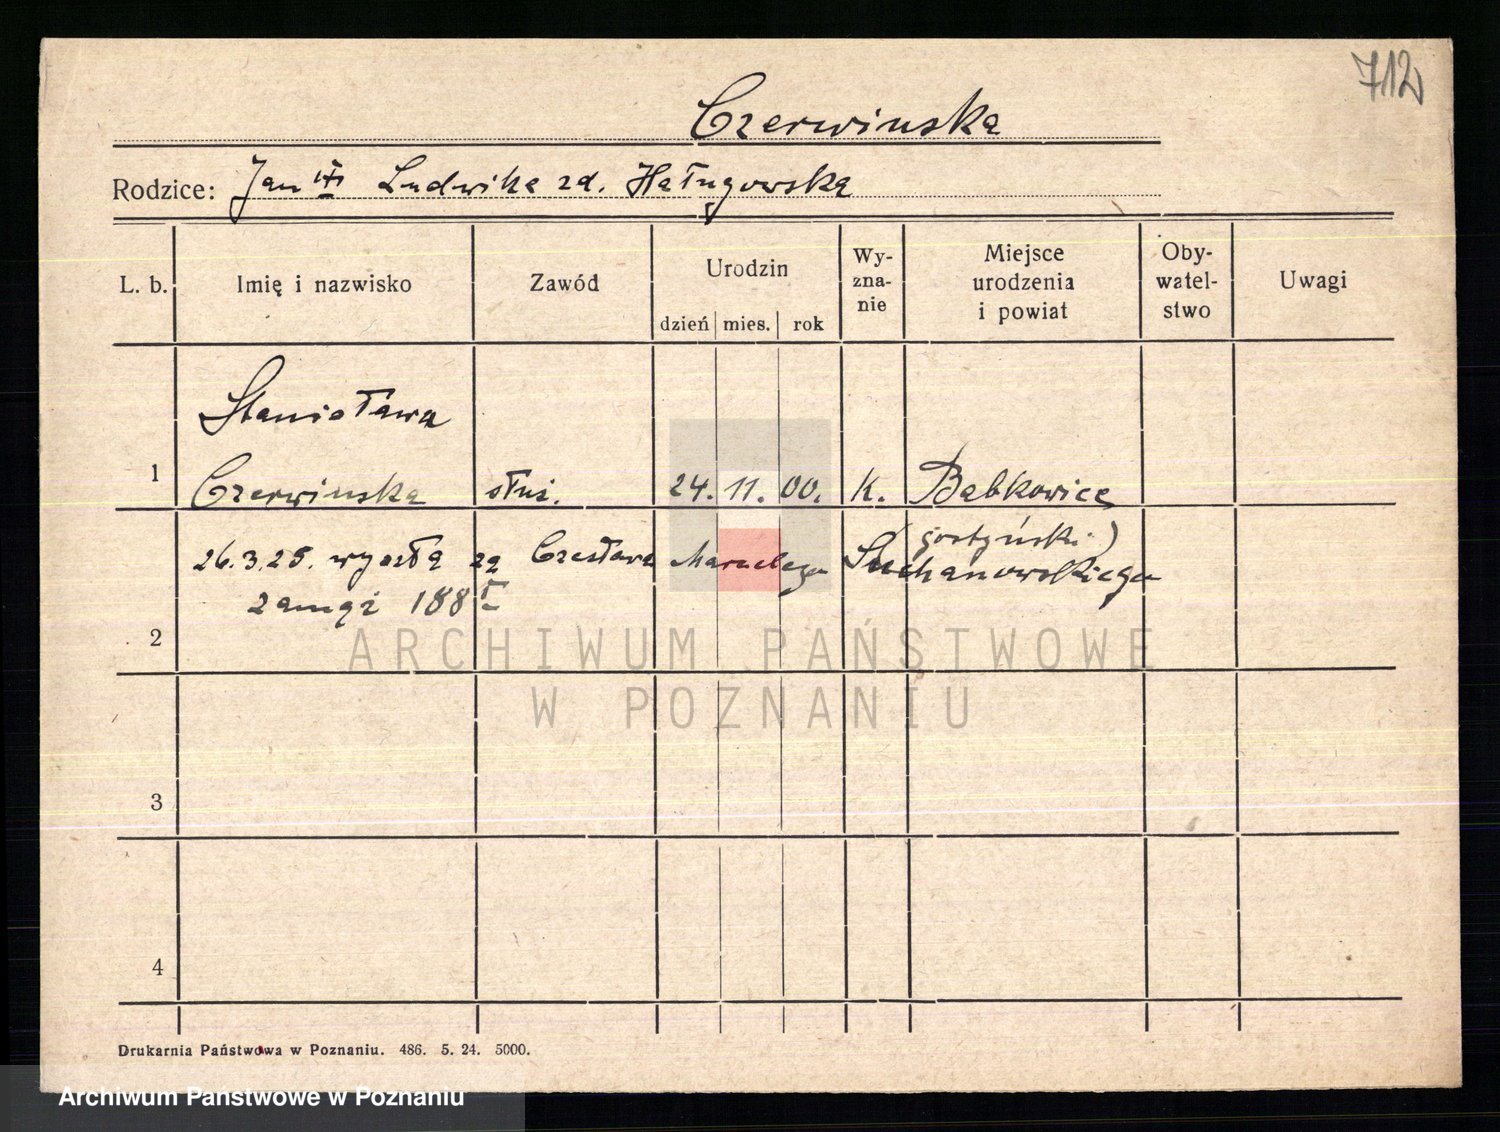 712
Czerwinska
Rodzice: Jan Ludwika zd. Haługowska
L. b. Imię i nazwisko Zawód Urodzin dzień mies. rok Wy-zna-nie Miejsce urodzenia i powiat Oby-watel-stwo Uwagi
Stanisława
1 Czerwinska służ. 24. 11. 00. K. Bąbkowice
(gostyński)
26.3.25. wyszła za Czesława Marcelego Suchanowskiego
zamąż 188
2
ARCHIWUM PAŃSTWOWE
W POZNANIU
3
4
Drukarnia Państwowa w Poznaniu. 486. 5. 24. 5000.
Archiwum Państwowe w Poznaniu